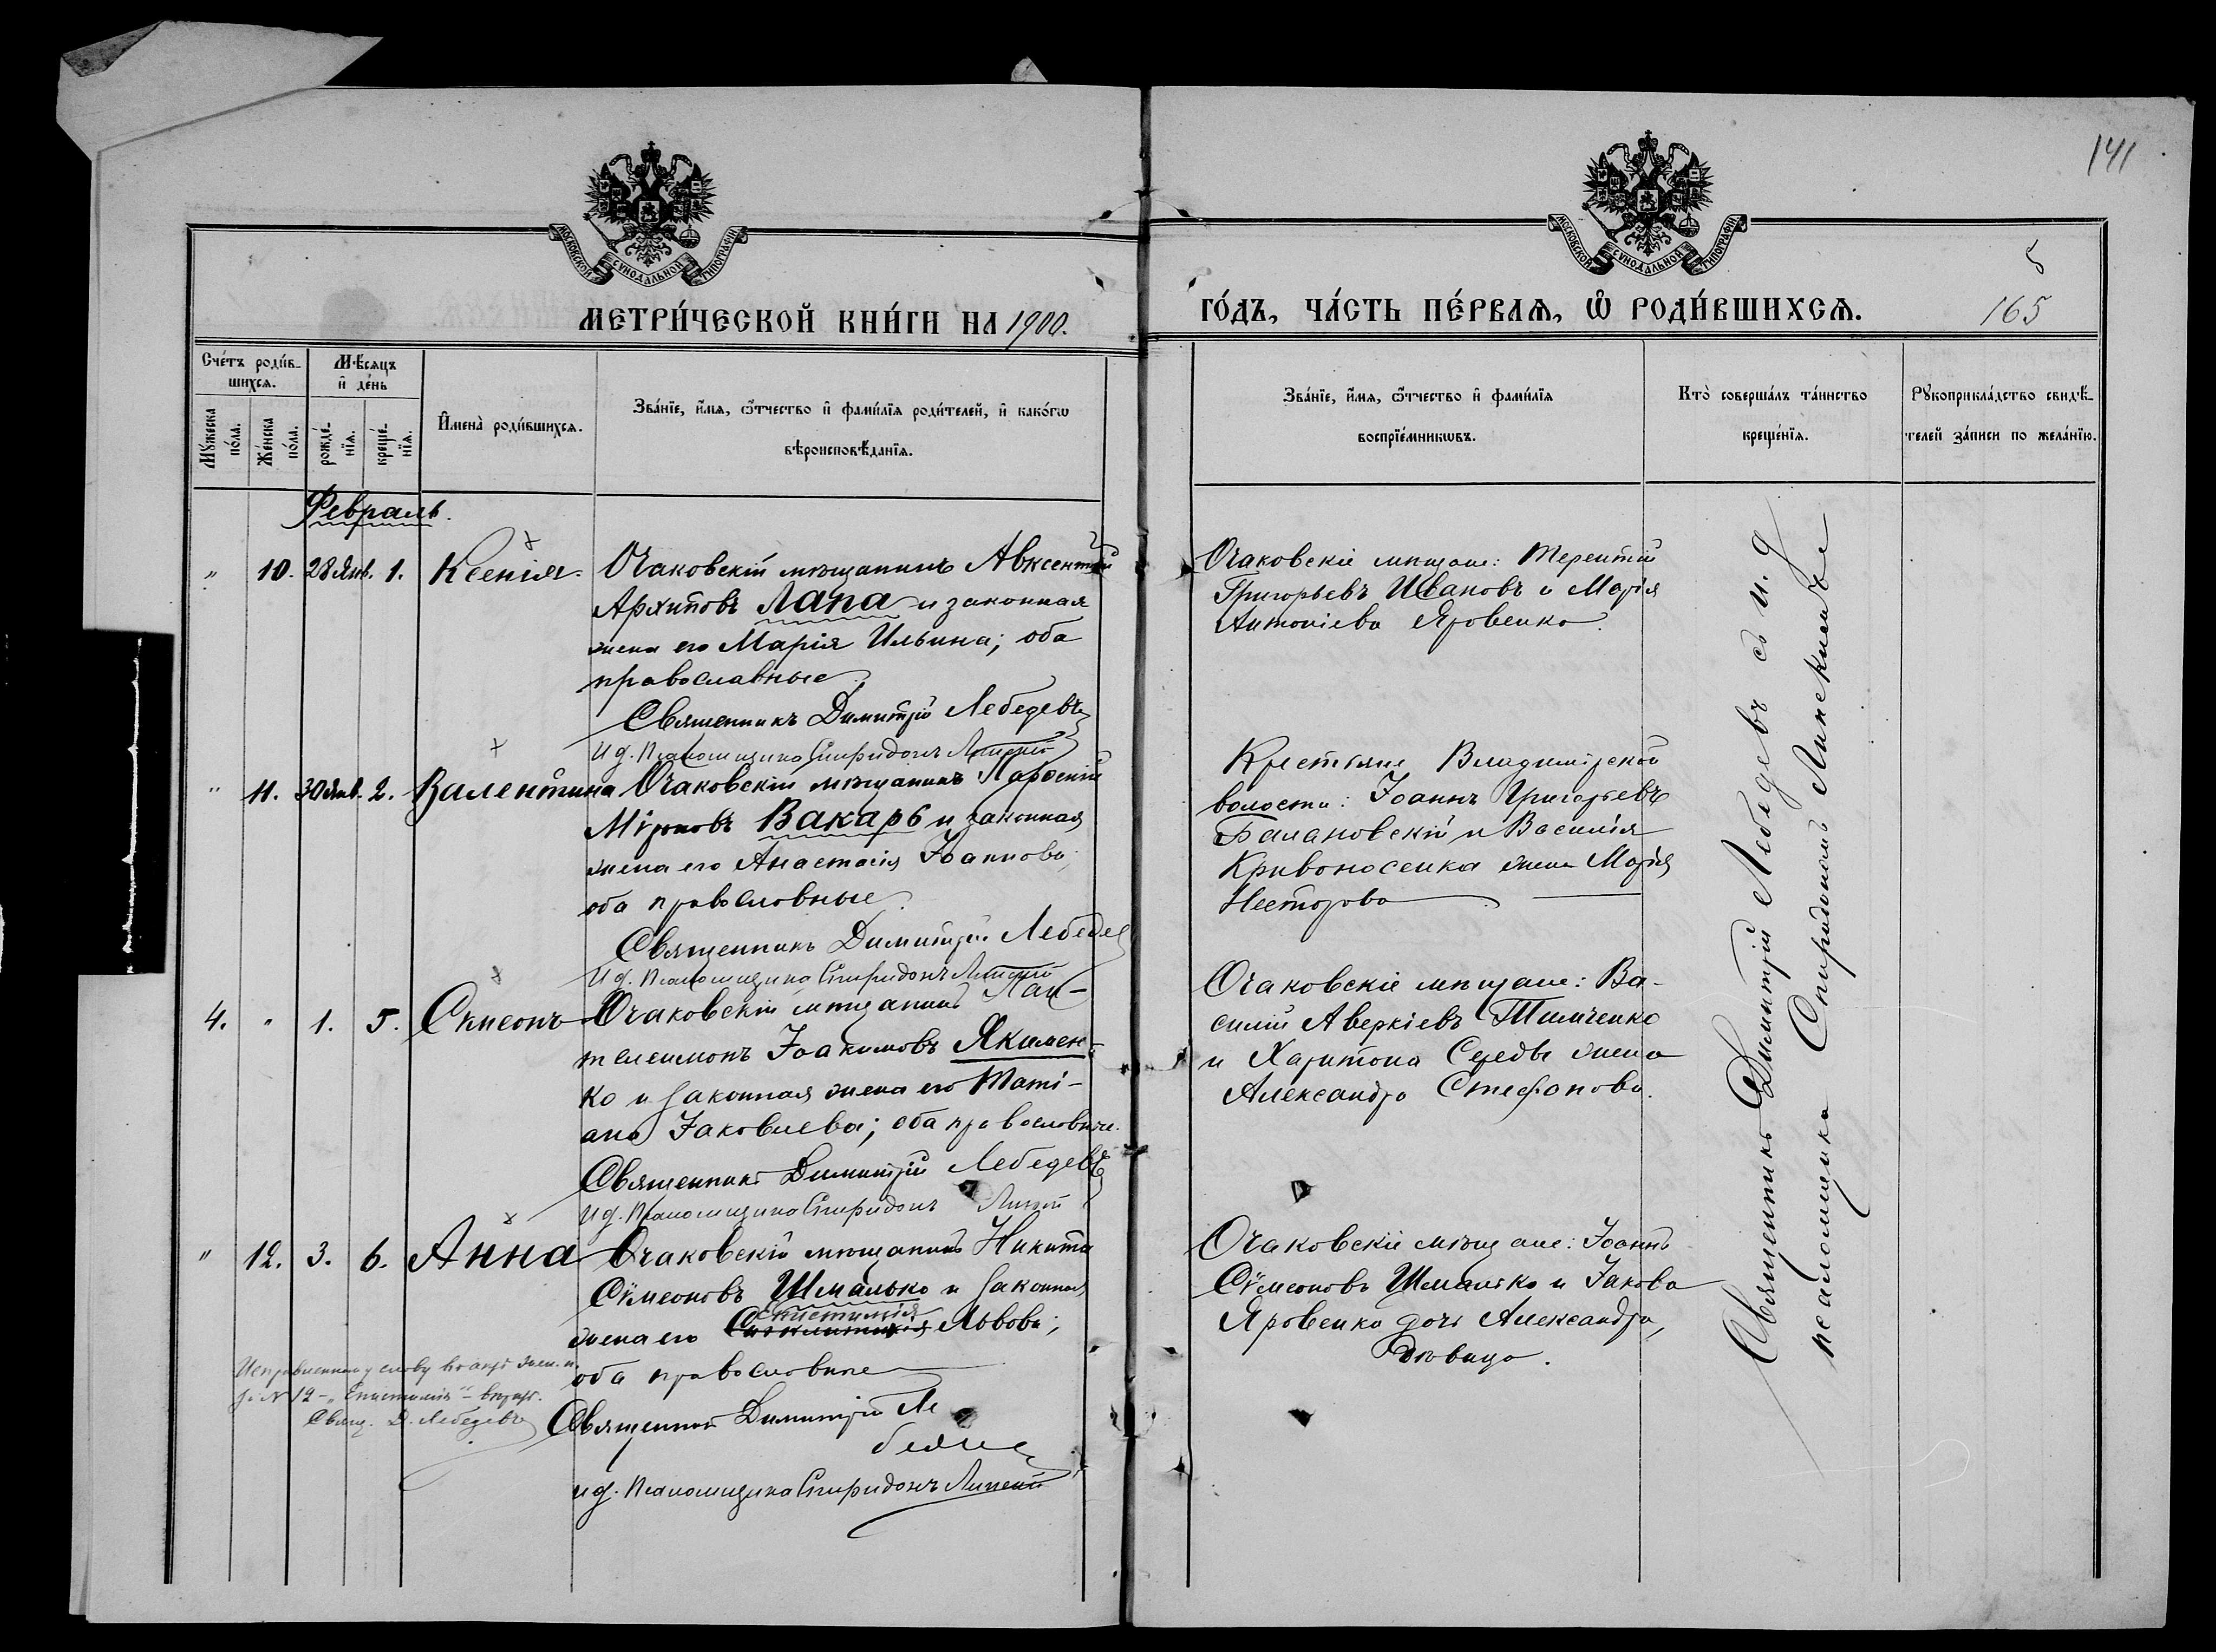 141
МОСКОВСКОЙ СУНОДАЛЬНОЙ ТИПОГРАФІИ
МОСКОВСКОЙ СУНОДАЛЬНОЙ ТИПОГРАФІИ
МЕТРИ́ЧЕСКОЙ КНИ́ГИ НА 1900.
ГО́ДЪ, ЧА́СТЬ ПЕ́РВАЯ, Ѡ РОДИ́ВШИХСЯ.
165
Сче́тъ роди́в-
шихся.
Мѣ́сяцъ
и де́нь
Му́жеска
по́ла.
Же́нска
по́ла.
рожде́-
нїя.
креще́-
нїя.
Имена̀ роди́вшихся.
Зва́нїе, и́мя, ѻ́тчество и фами́лїя роди́телей, и како́гѡ
вѣроисповѣ́данїя.
Зва́нїе, и́мя, ѻ́тчество и фами́лїя
воспрїе́мникѡвъ.
Кто̀ соверша́лъ та́инство
креще́нїя.
Рукоприкла́дство свидѣ́-
телей за́писи по жела́нїю.
Февраль.
" 10. 28 Янв. 1. Ксенія. Очаковскій мѣщанинъ Авксентій
Архиповъ Лапа и законная
жена его Марія Ильина; оба
православные.
Священникъ Димитрій Лебедевъ
И д. Псаломщика Спиридонъ Липскій
Очаковскіе мѣщане: Терентій
Григорьевъ Ивановъ и Марія
Антоніева Яровенко.
" 11. 30 Янв. 2. Валентина Очаковскій мѣщанинъ
Міроновъ Вакарь и законная
жена его Анастасія Іоаннова;
оба православные.
Священникъ Димитрій Лебедев
И д. Псаломщика Спиридонъ Липскій
Крестьяне Владимірской
волости: Іоаннъ Григорьевъ
Балановскій и Василія
Кривоносенка жена Марія
Несторова
4. " 1. 5. Симеонъ Очаковскій мѣщанинъ Пан-
телеимонъ Іоакимовъ Якимен-
ко и законная жена его Таті-
ана Іаковлева; оба православные.
Священникъ Димитрій Лебедевъ
И д. Псаломщика Спиридонъ Липскій
Очаковскіе мѣщане: Ва-
силій Аверкіевъ Тимченко
и Харитона Середы жена
Александра Стефанова.
" 12. 3. 6. Анна Очаковскій мѣщанинъ Никита
Сѵмеоновъ Шмалько и законная
Епистимія
жена его Львова;
оба православные
Священникъ Димитрій Ле
бедев
и д. Псаломщика Спиридонъ Липскій
Очаковскіе мѣщане: Іоаннъ
Сѵмеоновъ Шмалько и Іакова
Яровенка дочь Александра,
дѣвица.
Исправленному слову въ актѣ жен. п.
N 12 – „Епистимія" – вѣрить.
Свящ. Д. Лебедевъ
Священникъ Димитрій Лебедевъ съ и. д.
псаломщика Спиридономъ Липскимъ